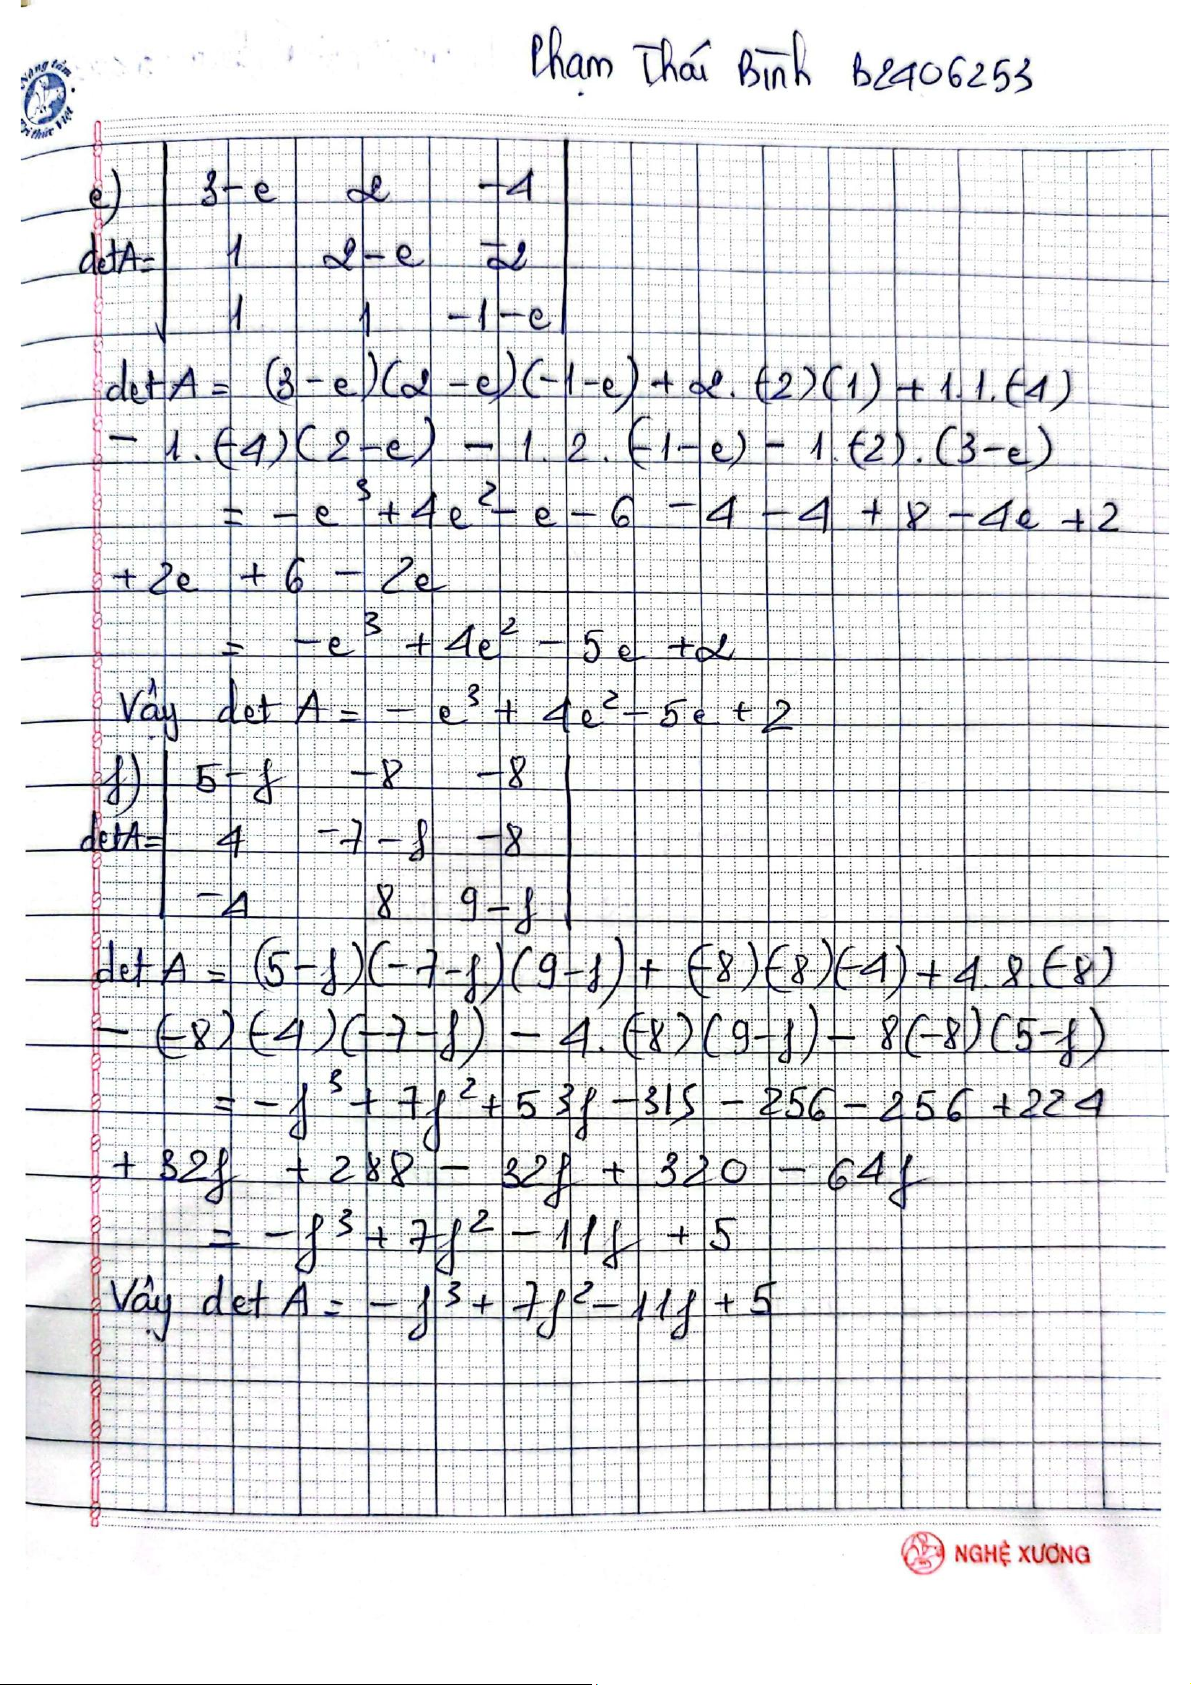 Phạm Thái Bình B2406253
Nâng tầm
Tri thức Việt
e) | 3-e 2 -4 |
detA= | 1 2-e -2 |
| 1 1 -1-e |
det A = (3-e)(2-e)(-1-e) + 2.(-2)(1) + 1.1.(-4)
- 1.(-4)(2-e) - 1.2.(-1-e) - 1.(-2).(3-e)
= -e³ + 4e² - e - 6 - 4 - 4 + 8 - 4e + 2
+ 2e + 6 - 2e
= -e³ + 4e² - 5e + 2
Vậy det A = -e³ + 4e² - 5e + 2
f) | 5-f -8 -8 |
detA= | 4 -7-f -8 |
| -4 8 9-f |
det A = (5-f)(-7-f)(9-f) + (-8)(-8)(-4) + 4.8.(-8)
- (-8)(-4)(-7-f) - 4.(-8)(9-f) - 8(-8)(5-f)
= -f³ + 7f² + 53f - 315 - 256 - 256 + 224
+ 32f + 288 - 32f + 320 - 64f
= -f³ + 7f² - 11f + 5
Vậy det A = -f³ + 7f² - 11f + 5
NGHỆ XƯƠNG